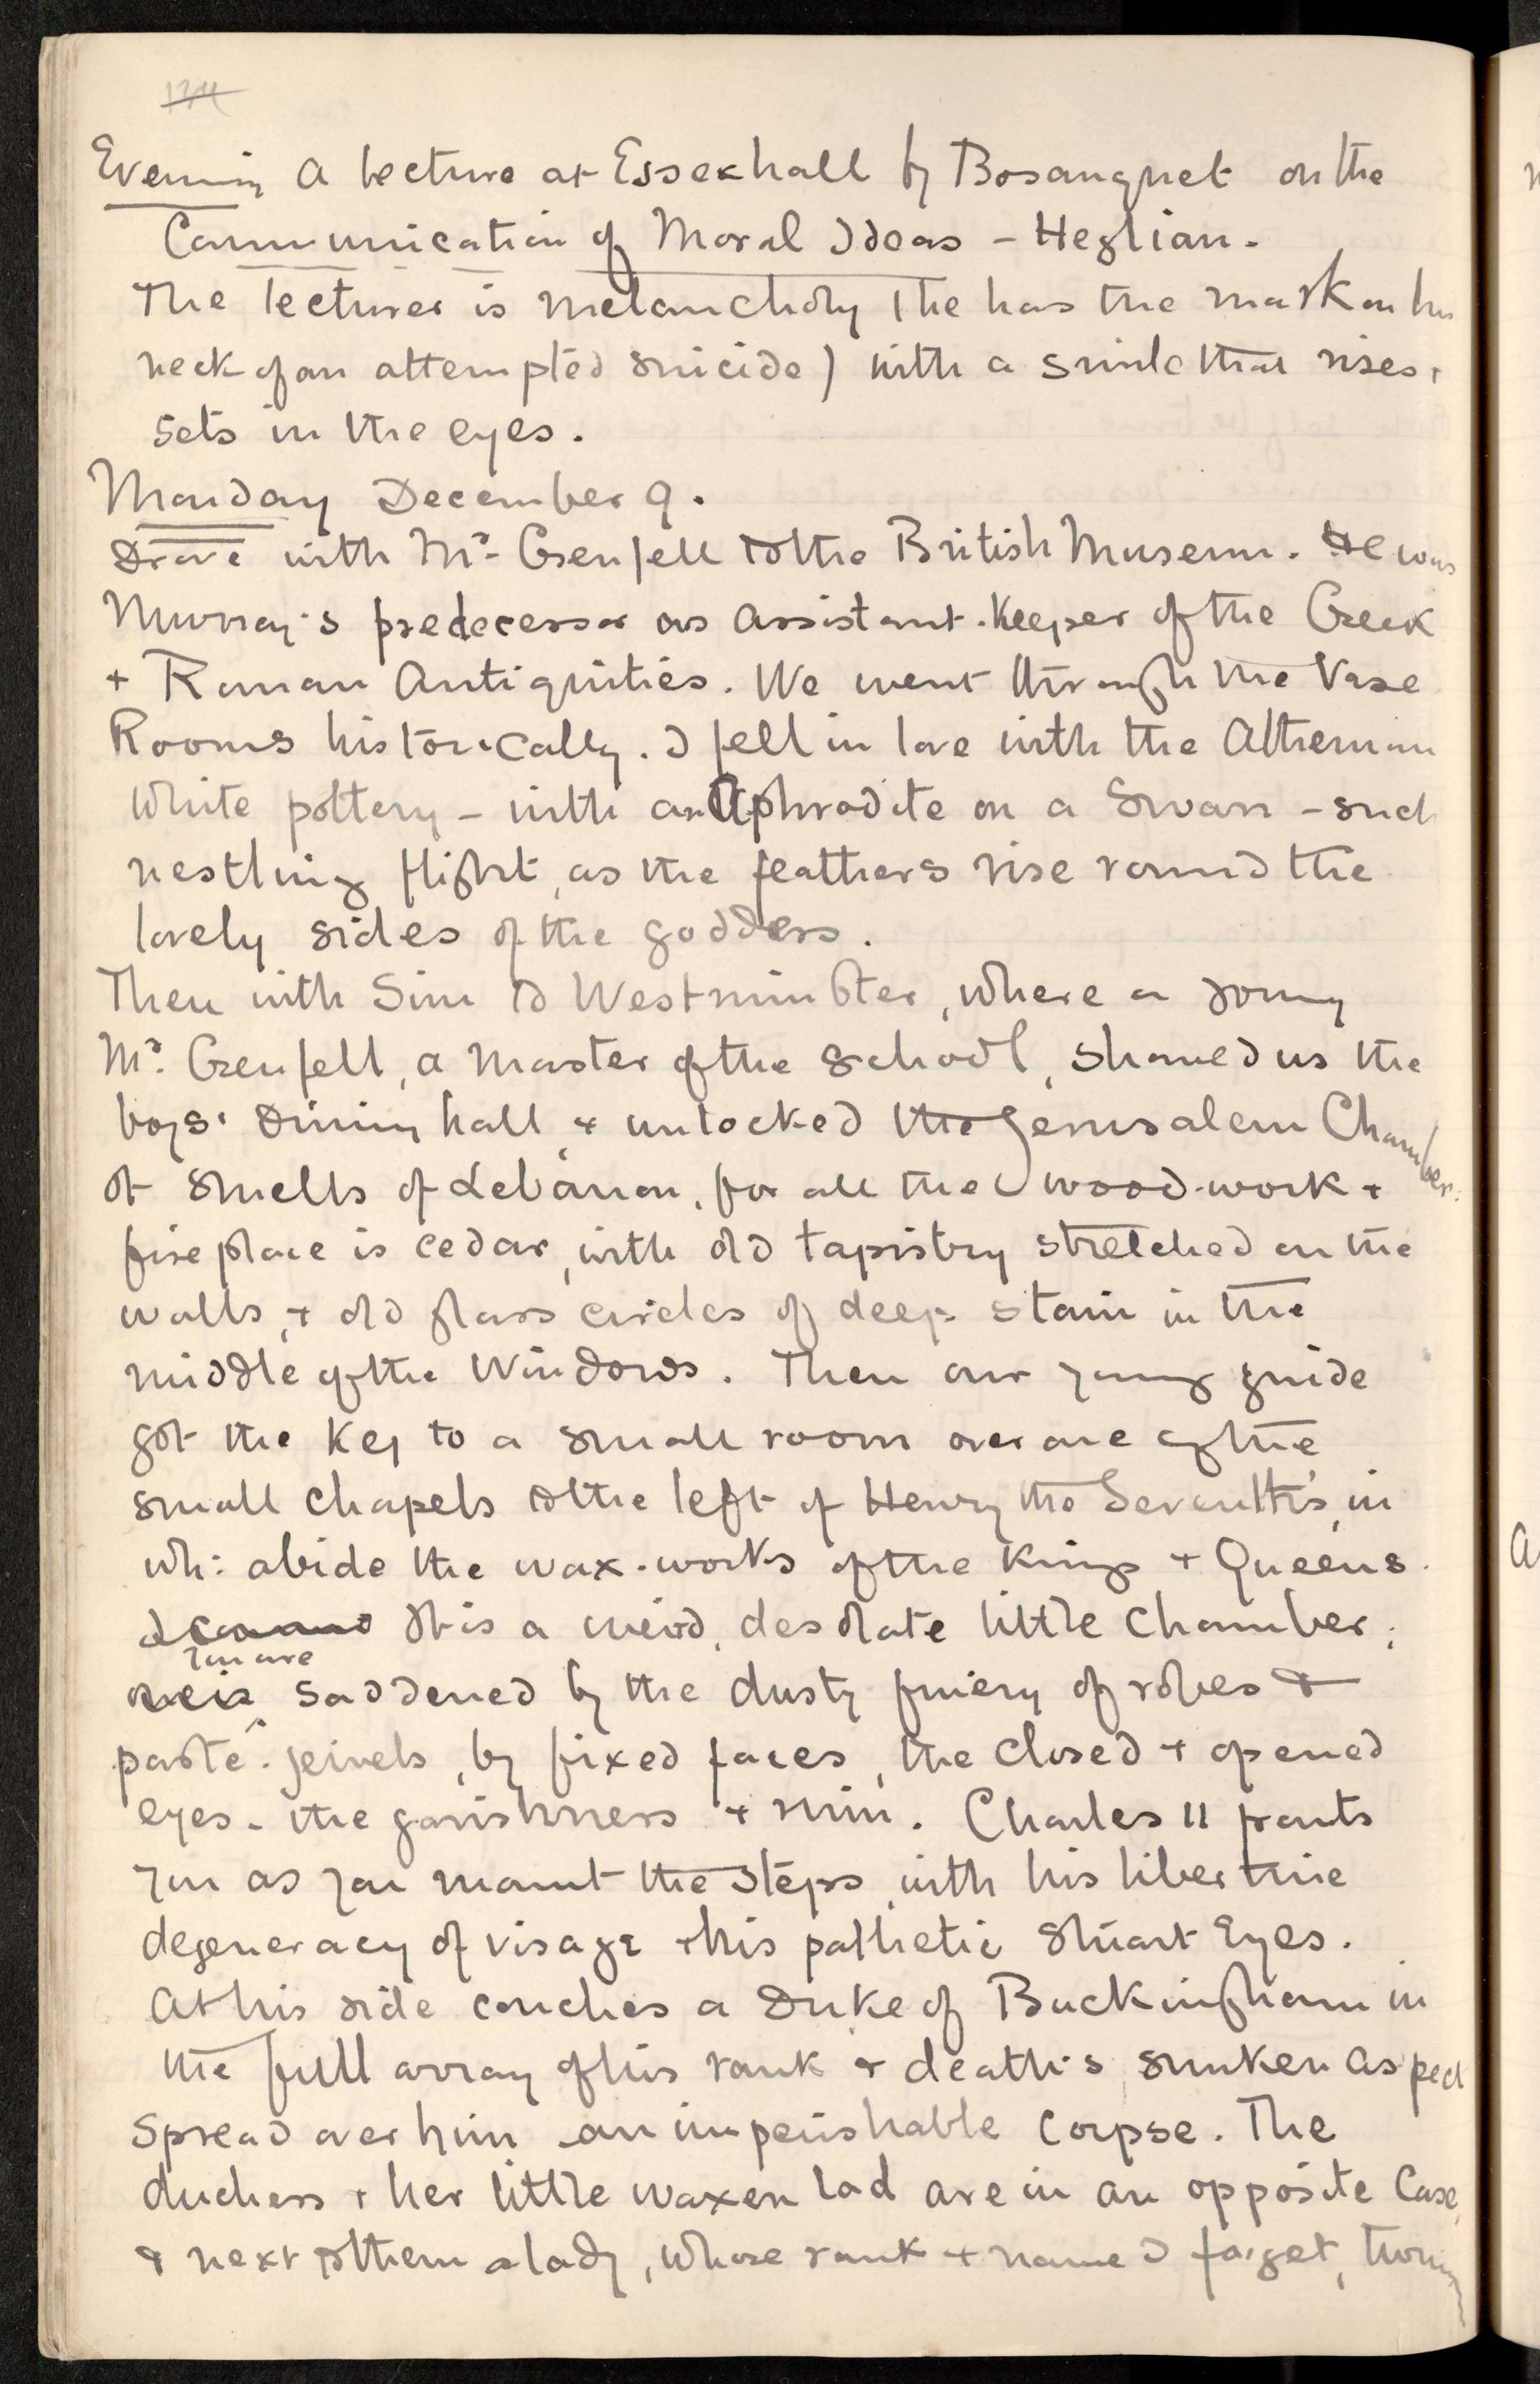 134
Evening A lecture at Essex hall by Bosanquet on the
Communication of Moral Ideas – Heglian.
The lecturer is melancholy (he has the mark on his
neck of an attempted suicide) with a smile that rises &
sets in the eyes.
Monday December 9.
Drove with Mr. Grenfell to the British Museum. He was
Murray's predecessor as assistant-keeper of the Greek
+ Roman Antiquities. We went through the Vase
Rooms historically. I fell in love with the Athenian
white pottery – with an Aphrodite on a Swan – such
nestling flight, as the feathers rise round the
lovely sides of the goddess.
Then with Sim to Westminster, where a young
Mr. Grenfell, a master of the school, showed us the
boys' dining hall, + unlocked the Jerusalem Chamber:
it smells of Lebanon, for all the wood-work +
fire place is cedar, with old tapistry stretched on the
walls, + old glass circles of deep stain in the
middle of the windows. Then our young guide
got the key to a small room over one of the
small chapels to the left of Henry the Seventh's, in
wh: abide the wax-works of the Kings + Queens.
It is a weird, desolate little chamber;
you are
saddened by the dusty finery of robes &
paste-jewels, by fixed faces, the closed + opened
eyes – the garishness + ruin. Charles II fronts
you as you mount the steps, with his libertine
degeneracy of visage + his pathetic Stuart Eyes.
At his side couches a Duke of Buckingham in
the full array of his rank & death's sunken aspect
spread over him – an imperishable corpse. The
duchess + her little waxen lad are in an opposite Case,
& next to them a lady, whose rank + name I forget, though